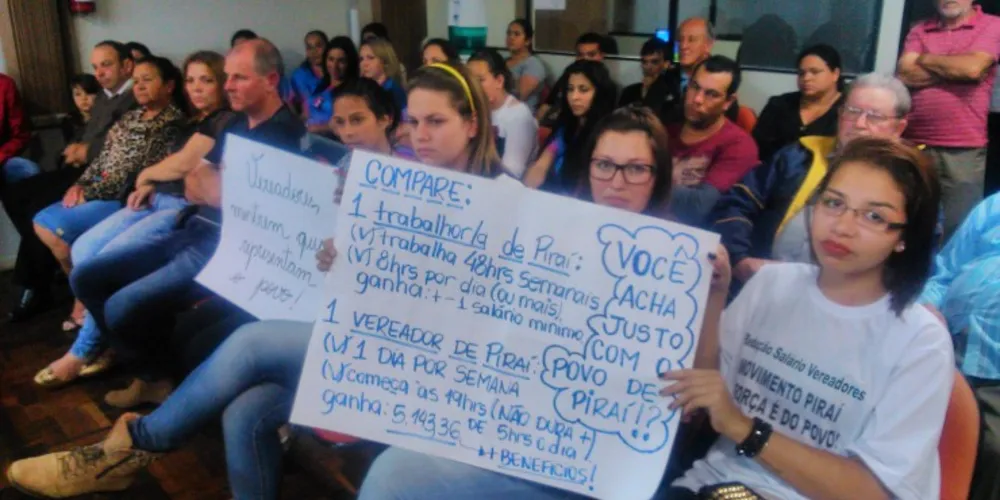 Vereadores,
mostrem que
representam
o povo!
COMPARE:
1 trabalhor/a de Piraí:
(V) trabalha 48hrs semanais
(V) 8hrs por dia (ou mais)
ganha: + - 1 salário mínimo
1 VEREADOR DE PIRAÍ:
(V) 1 DIA POR SEMANA
(V) começa às 19hrs (NÃO DURA +
DE 5hrs o dia)
ganha: 5.143,36
++ BENEFÍCIOS!
VOCÊ
ACHA
JUSTO
COM O
POVO DE
PIRAÍ!?
Redução Salário Vereadores
MOVIMENTO PIRAÍ
FORÇA É DO POVO!